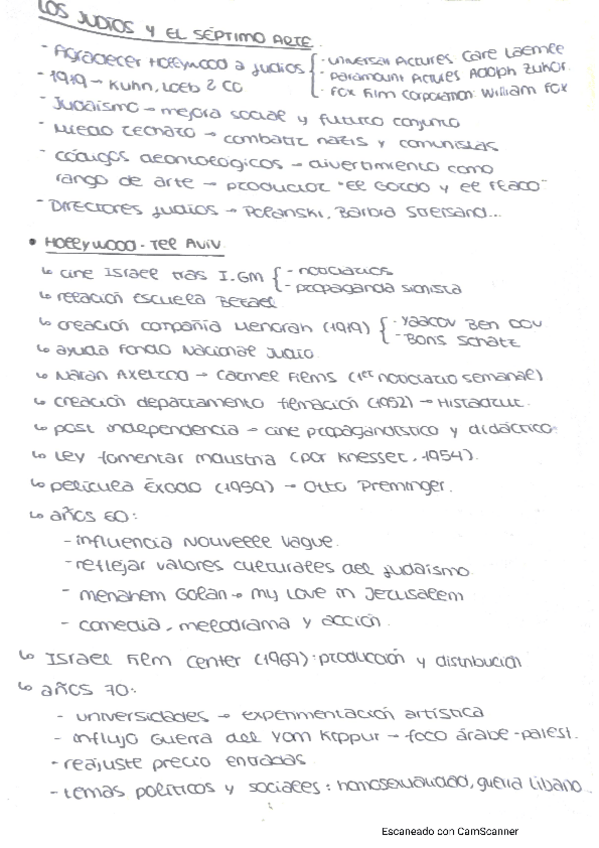 LOS JUDIOS Y EL SÉPTIMO ARTE
- Agradecer Hollywood a judios { - Universal Pictures: Carl Laemle
- Paramount Pictures Adolph Zukor
- Fox Film Corporation: William Fox
- 1919 → Kuhn, Loeb & Co
- Judaísmo → mejora social y futuro conjunto
- Nuevo rechazo → combatir nazis y comunistas
- códigos deontologicos → divertimiento como
rango de arte → productor "el Gordo y el Flaco"
- Directores judios → Polanski, Barbra Streisand...
• HOLLYWOOD - TEL AVIV
↳ cine Israel tras I.GM { - noticiarios
- propaganda sionista
↳ relación escuela Betzel
↳ creación compañía Menorah (1919) { - Yaacov Ben Dov
- Boris Schatz
↳ ayuda Fondo Nacional Judío
↳ Natan Axelrod → Carmel Films (1er noticiario semanal)
↳ creación departamento filmación (1952) → Histadrut.
↳ post independencia → cine propagandístico y didáctico.
↳ Ley fomentar industria (por Knesset, 1954).
↳ película Éxodo (1959) → Otto Preminger.
↳ años 60:
- influencia Nouvelle Vague.
- reflejar valores culturales del judaísmo
- menahem Golan → my Love in Jerusalem
- comedia, melodrama y acción.
↳ Israel Film Center (1969): producción y distribución
↳ años 70:
- universidades → experimentación artística
- influjo Guerra del Yom Kippur → foco árabe-palest.
- reajuste precio entradas
- temas políticos y sociales: homosexualidad, guerra Líbano
Escaneado con CamScanner